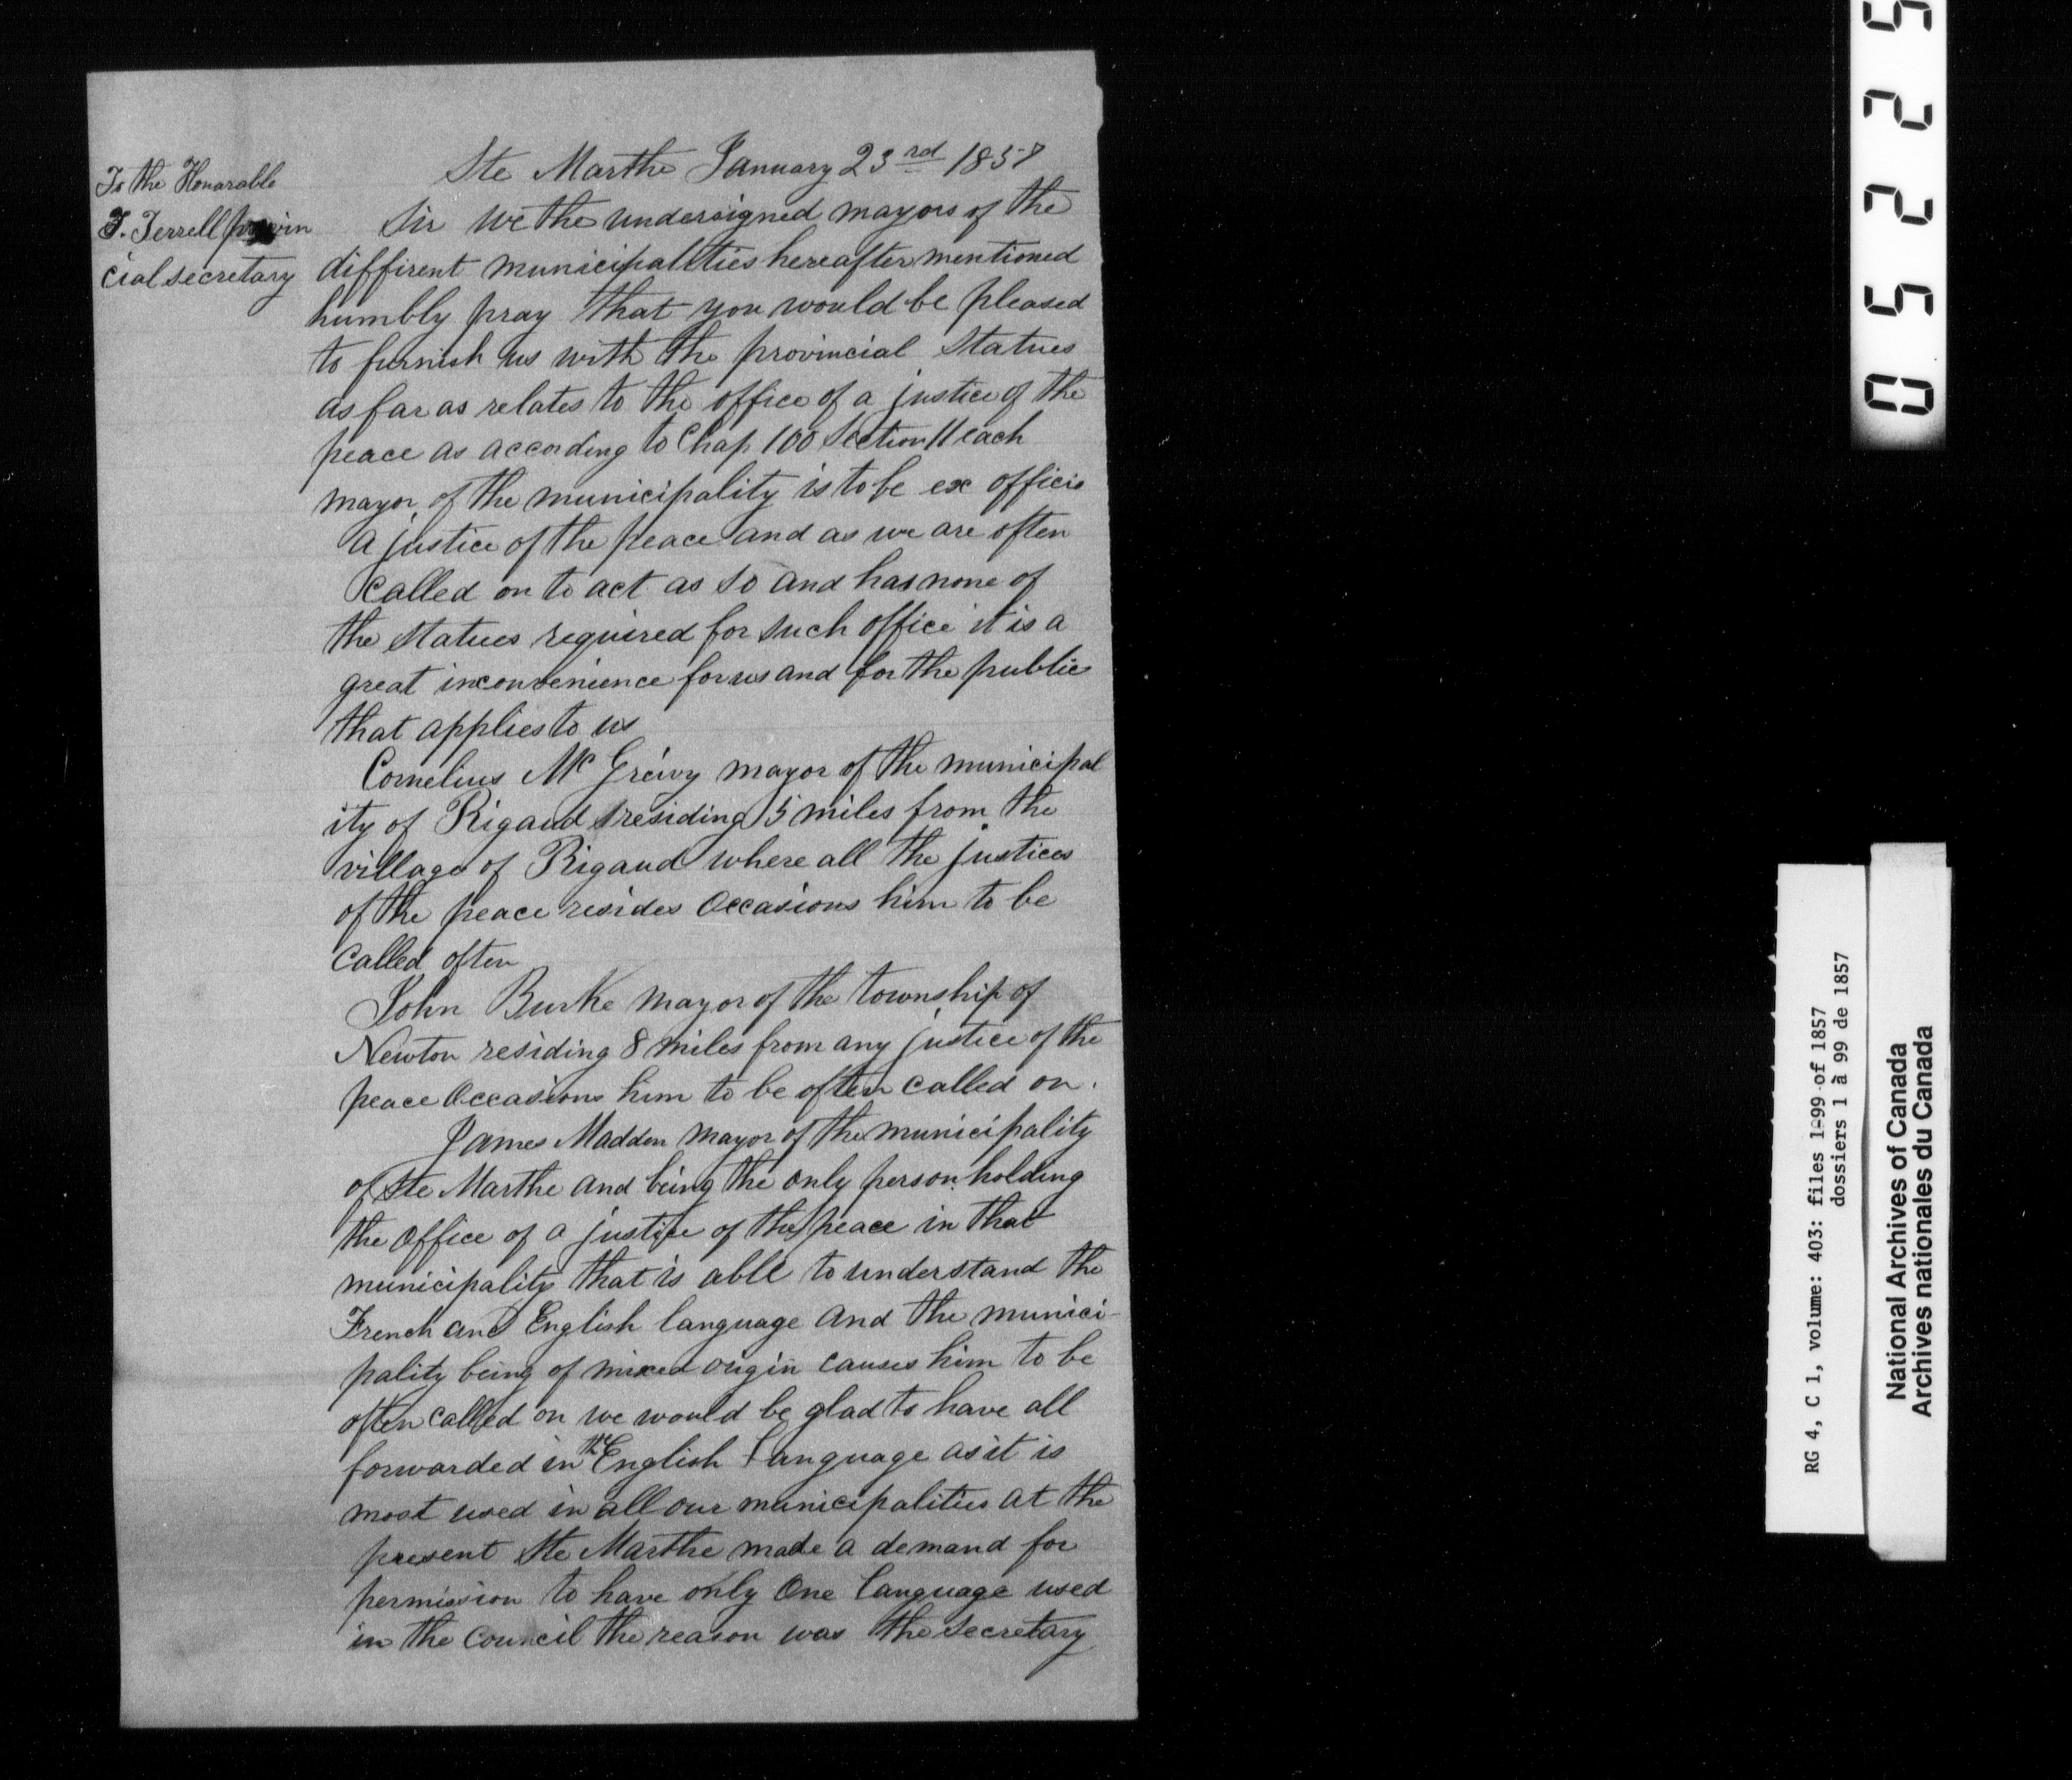 Ste Marthe January 23rd 1857
To the Honarable
T. Terrell provin
cial secretary
Sir we the undersigned mayors of the
diffirent municipalities hereafter mentioned
humbly pray that you would be pleased
to furnish us with the provincial Statues
as far as relates to the office of a justice of the
peace as according to Chap 100 Section 11 each
mayor of the municipality is to be ex officio
a justice of the peace and as we are often
called on to act as so and has none of
the statues required for such office it is a
great inconvenience for us and for the public
that applies to us
Cornelius Mc Greivy mayor of the municipal
ity of Rigaud residing 5 miles from the
village of Rigaud where all the justices
of the peace resides occasions him to be
called often
John Burke mayor of the township of
Newton residing 8 miles from any justice of the
peace occasions him to be often called on.
James Madden mayor of the municipality
of Ste Marthe and being the only person holding
the office of a justice of the peace in that
municipality that is able to understand the
French and English language and the munici-
pality being of mixed origin causes him to be
often called on we would be glad to have all
forwarded in the English language as it is
most used in all our municipalities at the
present Ste Marthe made a demand for
permission to have only one language used
in the council the reason was the secretary
0 5 2 2 5
RG 4, C 1, volume: 403: files 1-99 of 1857
dossiers 1 à 99 de 1857
National Archives of Canada
Archives nationales du Canada